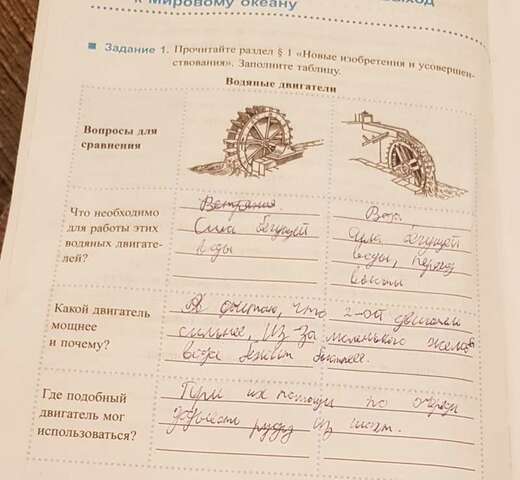 к Мировому океану
Задание 1. Прочитайте раздел § 1 «Новые изобретения и усовершен-
ствования». Заполните таблицу.
Водяные двигатели
Вопросы для
сравнения
Что необходимо
для работы этих
водяных двигате-
лей?
Сила бегущей
воды
Вод
бегущей
воды, перепад
высоты
Какой двигатель
мощнее
и почему?
Я считаю, что 2-ой двигатель
сильнее, Из за маленького
вода бежит быстрее.
Где подобный
двигатель мог
использоваться?
При их помощи
руду из шахт.